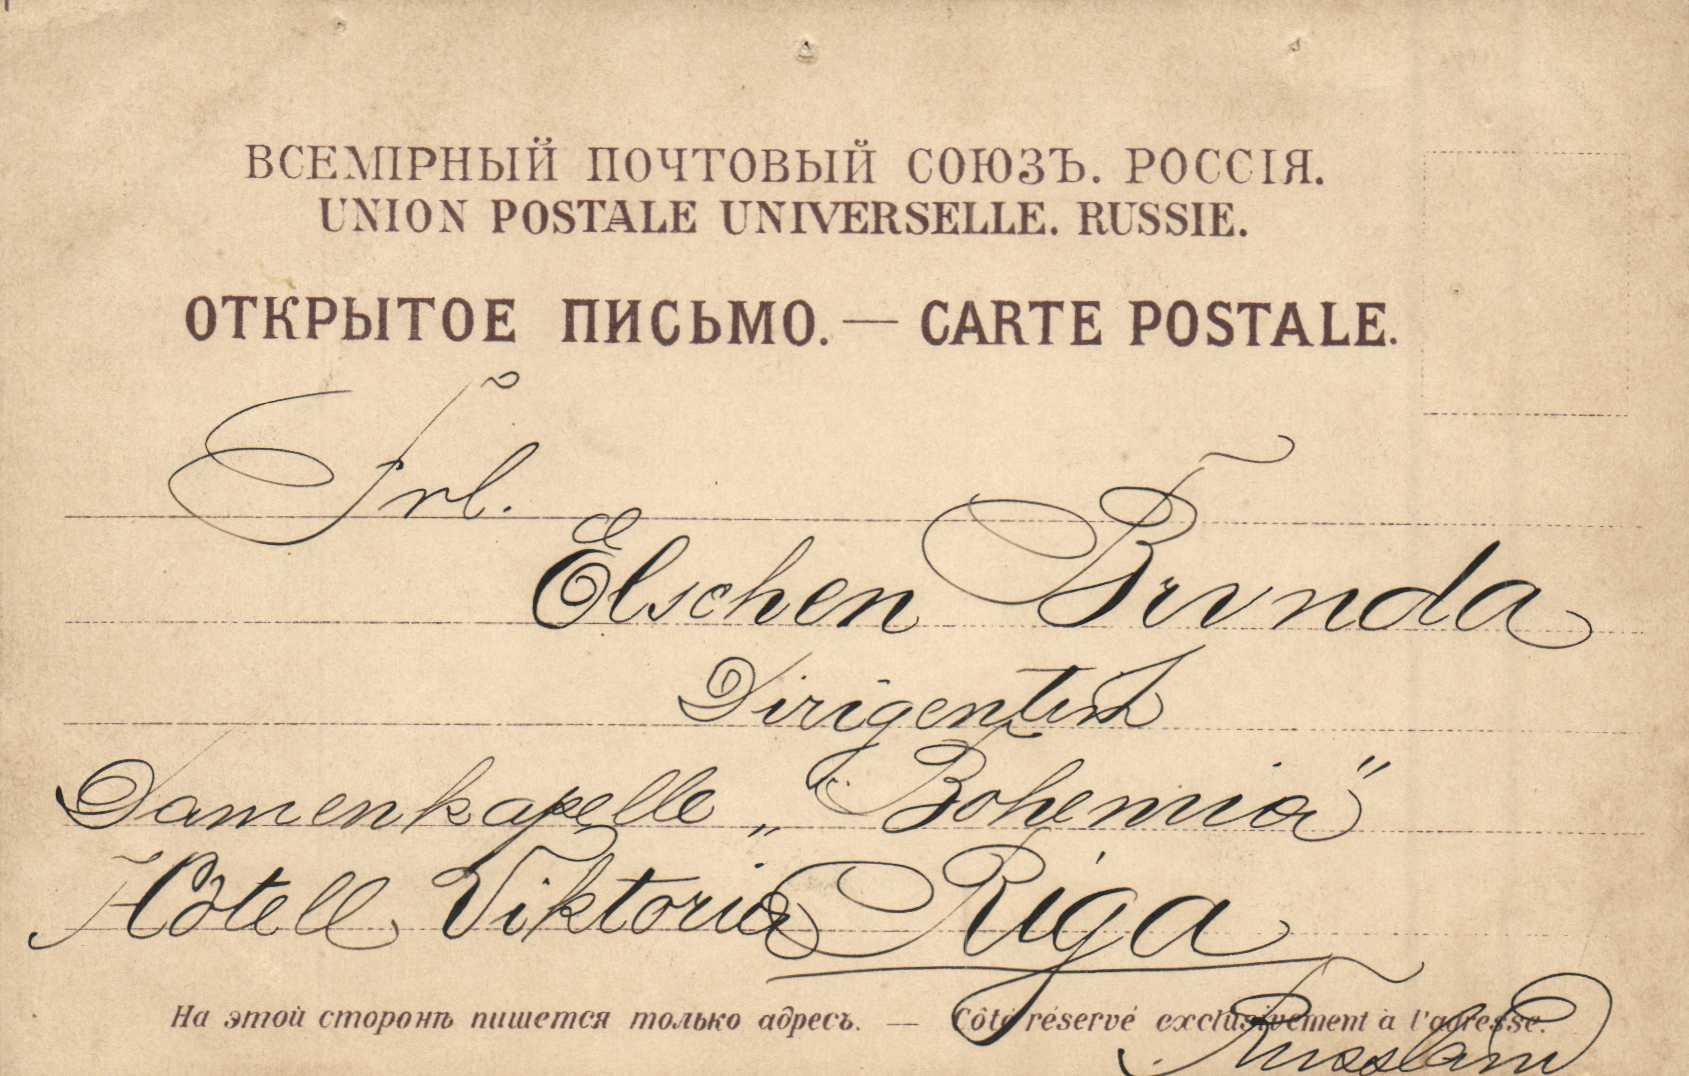 ВСЕМІРНЫЙ ПОЧТОВЫЙ СОЮЗЪ. РОССІЯ.
UNION POSTALE UNIVERSELLE. RUSSIE.
ОТКРЫТОЕ ПИСЬМО. — CARTE POSTALE.
Frl.
Elschen Brunda
Dirigentin
Damenkapelle „Bohemia"
Hôtell Viktoria Riga
На этой сторонѣ пишется только адресъ. — Côté réservé exclusivement à l'adresse.
Russland